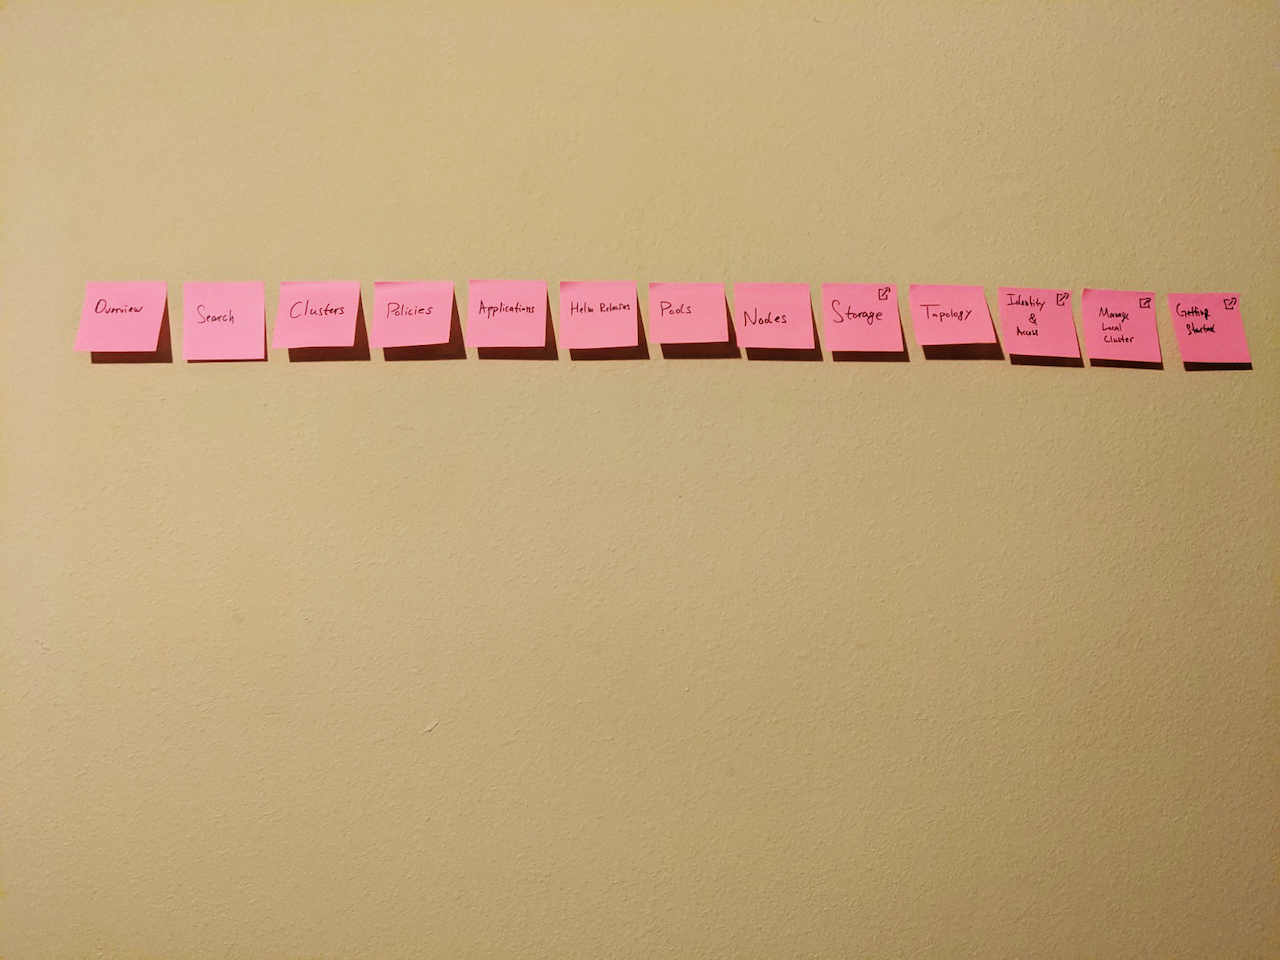 Overview
Search
Clusters
Policies
Applications
Helm Releases
Pods
Nodes
Storage
Topology
Identity
&
Access
Manage
Local
Cluster
Getting
Started